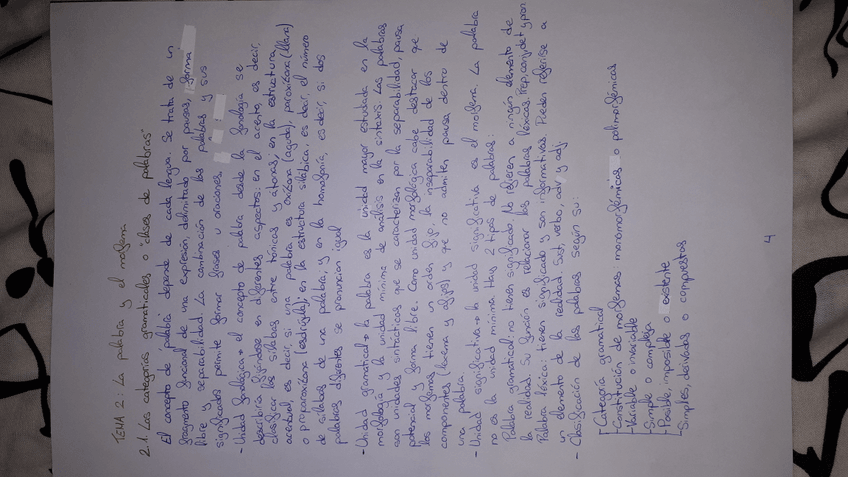 TEMA 2: La palabra y el morfema
2.1. Las categorías gramaticales o "clases de palabras"
El concepto de palabra depende de cada lengua. Se trata de un
fragmento funcional de una expresión, delimitado por pausas, forma
libre y separabilidad. La combinación de las palabras y sus
significados permite formar frases u oraciones
- Unidad fonológica → el concepto de palabra desde la fonología se
describiría fijándose en diferentes aspectos: en el acento, es decir,
clasificar las sílabas entre tónicas y átonas, en la estructura
acentual, es decir, si una palabra es oxítona (aguda), paroxítona (llana)
o proparoxítona (esdrújula), en la estructura silábica, es decir, el número
de sílabas de una palabra, y en la homofonía, es decir, si dos
palabras diferentes se pronuncian igual
- Unidad gramatical → la palabra es la unidad mayor estudiada en la
morfología y la unidad mínima de análisis en la sintaxis. Las palabras
son unidades sintácticas que se caracterizan por la separabilidad, pausa
potencial y forma libre. Como unidad morfológica cabe destacar que
los morfemas tienen un orden fijo, la inseparabilidad de los
componentes (lexema y afijos) y que no admiten pausa dentro de
una palabra
- Unidad significativa → la unidad significativa es el morfema. La palabra
no es la unidad mínima. Hay 2 tipos de palabras:
Palabra gramatical: no tienen significado. No refieren a ningún elemento de
la realidad. Su función es relacionar las palabras léxicas. Prep, conj, det y pron
Palabra léxica: tienen significado y son informativas. Pueden referirse a
un elemento de la realidad. Sust, verbo, adv y adj.
- Clasificación de las palabras según su:
- Categoría gramatical
- Constitución de morfemas: monomorfémicas o polimorfémicas
- Variable o invariable
- Simple o compleja
- Posible, imposible o existente
- Simples, derivadas o compuestas
4